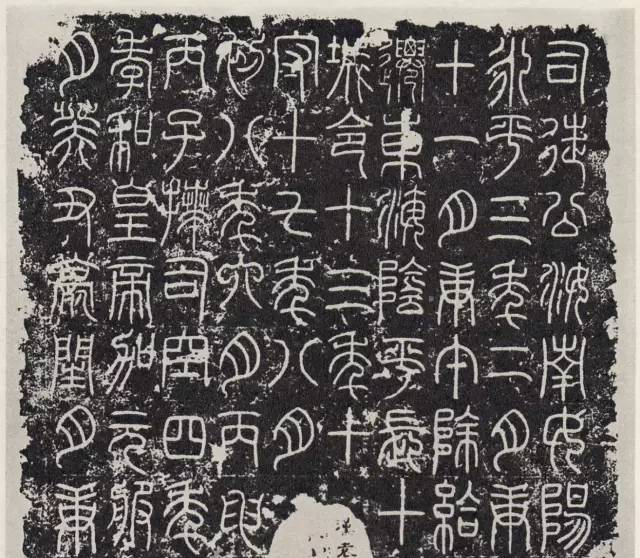 司徒公汝南女陽
永平三年二月庚
十一月庚午除給
遷東海陰平長十
城令十三年十
守十七年八月
初八年六月丙申
丙子拜司空四年
孝和皇帝加元服
月癸丑薨閏月庚
漢袁